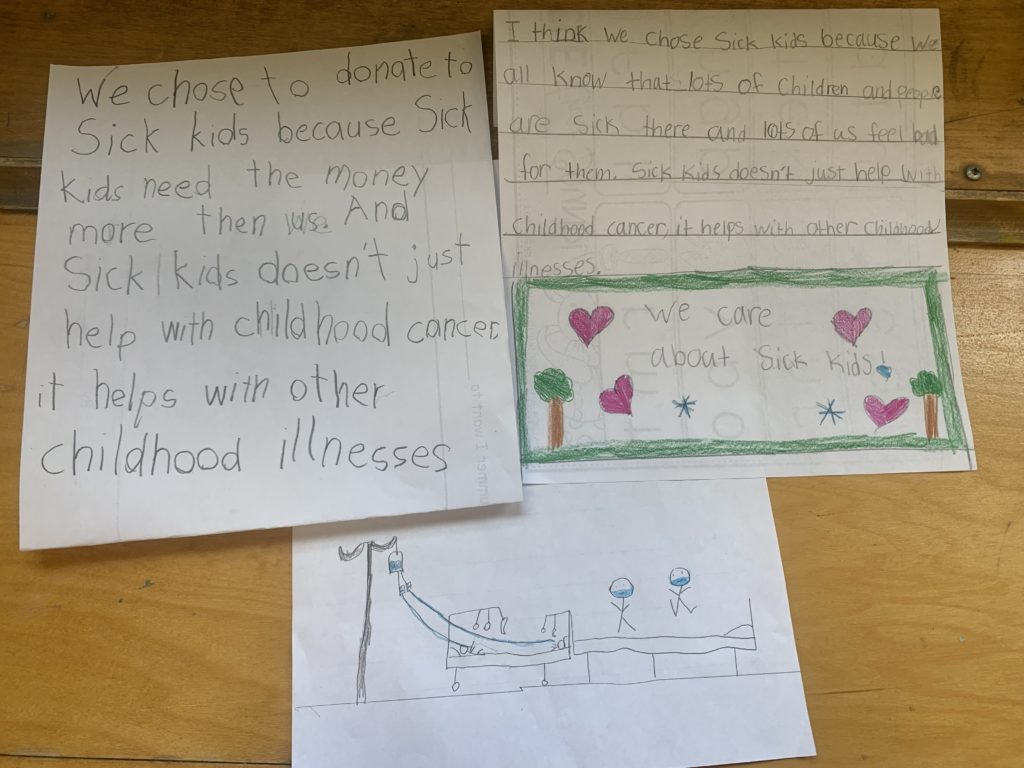 We chose to donate to
Sick kids because Sick
kids need the money
more then us. And
Sick kids doesn't just
help with childhood cancer,
it helps with other
childhood illnesses
I think we chose Sick kids because we
all know that lots of children and people
are sick there and lots of us feel bad
for them. Sick Kids doesn't just help with
childhood cancer, it helps with other childhood
illnesses.
We care
about Sick Kids!